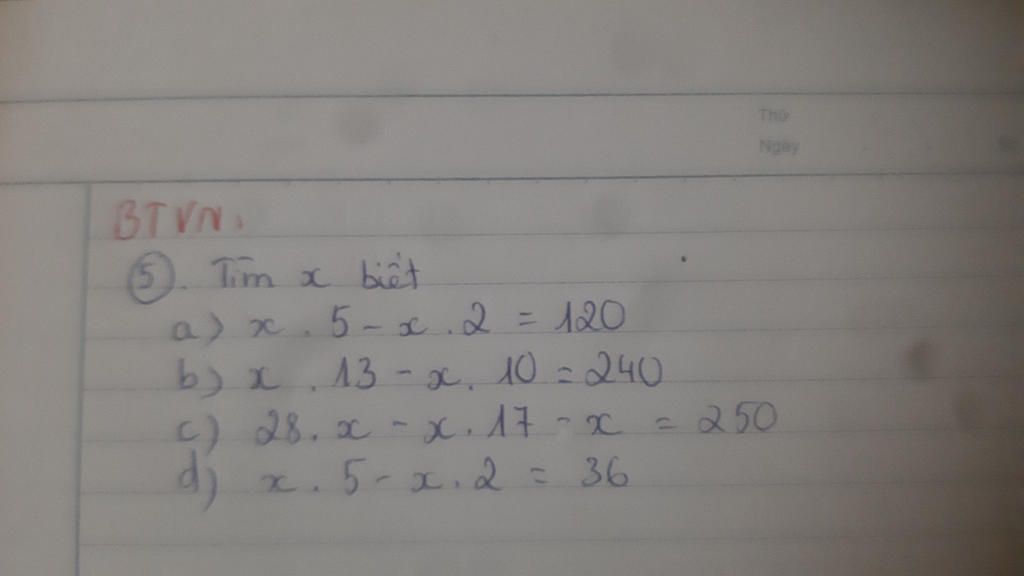 Thứ
Ngày
BTVN:
5. Tìm x biết
a) x . 5 - x . 2 = 120
b) x . 13 - x . 10 = 240
c) 28 . x - x . 17 - x = 250
d) x . 5 - x . 2 = 36